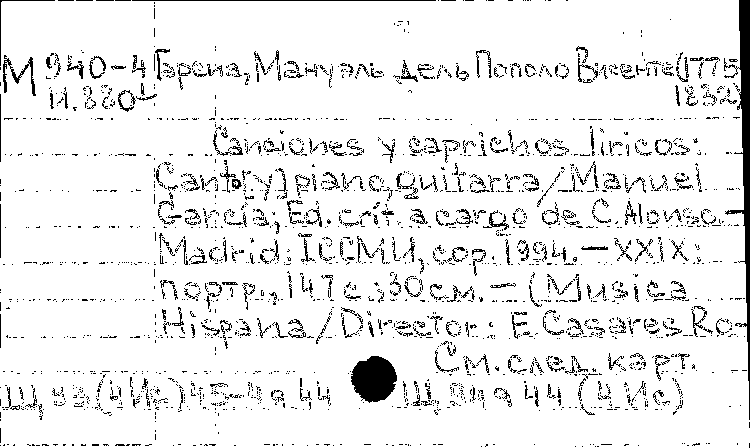 М 940-4 Гарсиа, Мануэль дель Пополо Висенте (1775-
И.880 1832)
Canciones y caprichos liricos:
Canto [y] piano, guitarra / Manuel
García; Ed. crít. a cargo de C. Alonso. –
Madrid: ICCMU, cop. 1994. – XXIX:
портр., 147 с.; 30 см. – (Musica
Hispana / Director: E. Casares Ro-
См. след. карт.
Щ 93 (4Ис) 45-4я 44 Щ 949 44 (4Ис)